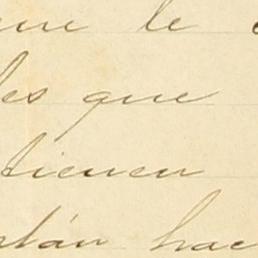 le
les que
tienen
están hac